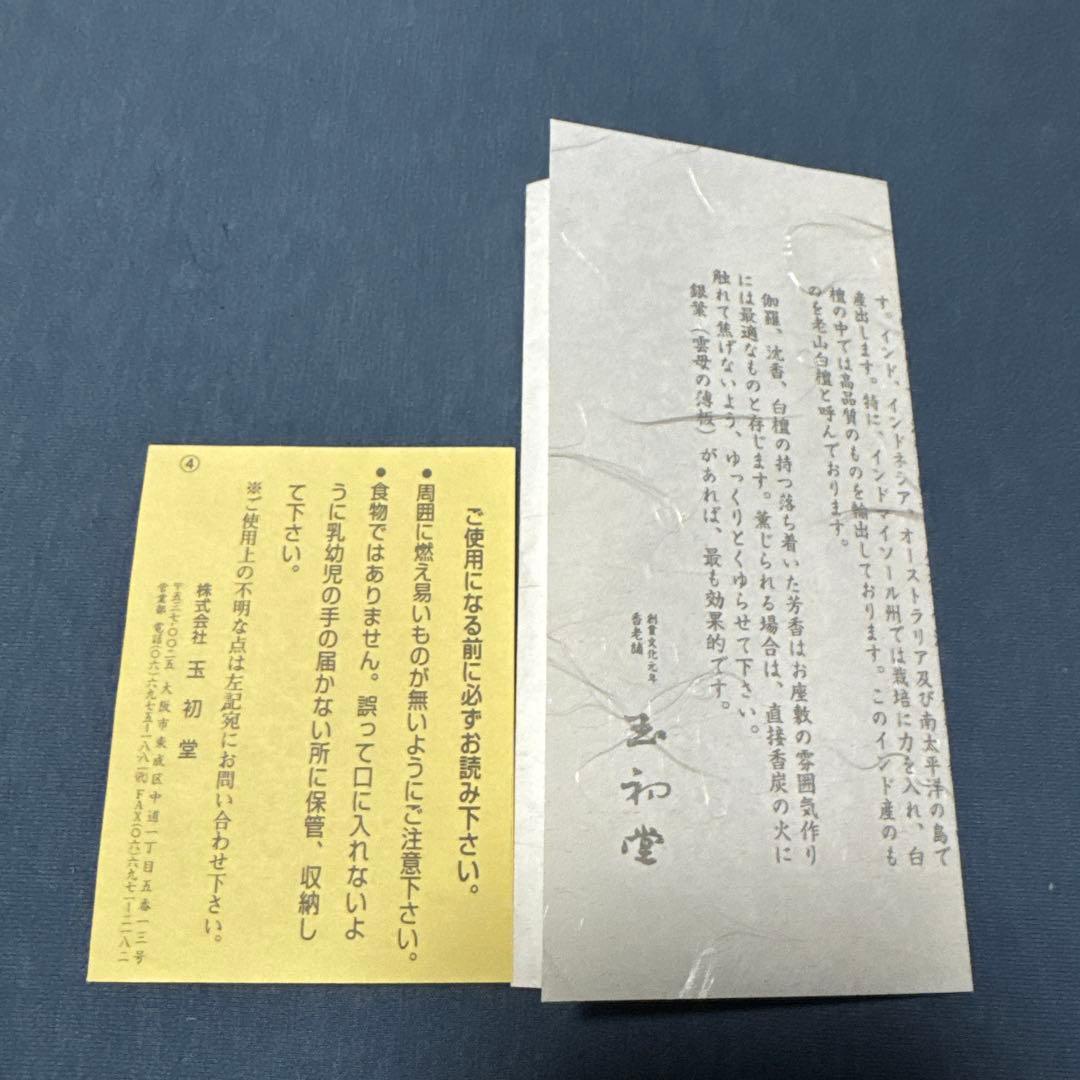 す。インド、インドネシア、オーストラリア及び南太平洋の島で
産出します。特に、インドマイソール州では栽培に力を入れ、白
檀の中では高品質のものを輸出しております。このインド産のも
のを老山白檀と呼んでおります。
伽羅、沈香、白檀の持つ落ち着いた芳香はお座敷の雰囲気作り
には最適なものと存じます。薫じられる場合は、直接香炭の火に
触れて焦げないよう、ゆっくりとくゆらせて下さい。
銀葉（雲母の薄板）があれば、最も効果的です。
創業文化元年
香老舗
玉初堂
ご使用になる前に必ずお読み下さい。
● 周囲に燃え易いものが無いようにご注意下さい。
● 食物ではありません。誤って口に入れないよ
うに乳幼児の手の届かない所に保管、収納し
て下さい。
※ご使用上の不明な点は左記宛にお問い合わせ下さい。
株式会社 玉初堂
〒五三七-〇〇二五 大阪市東成区中道一丁目五番一三号
営業部 電話(〇六)六九七五-一八八一㈹ FAX(〇六)六九七一-二一八二
④